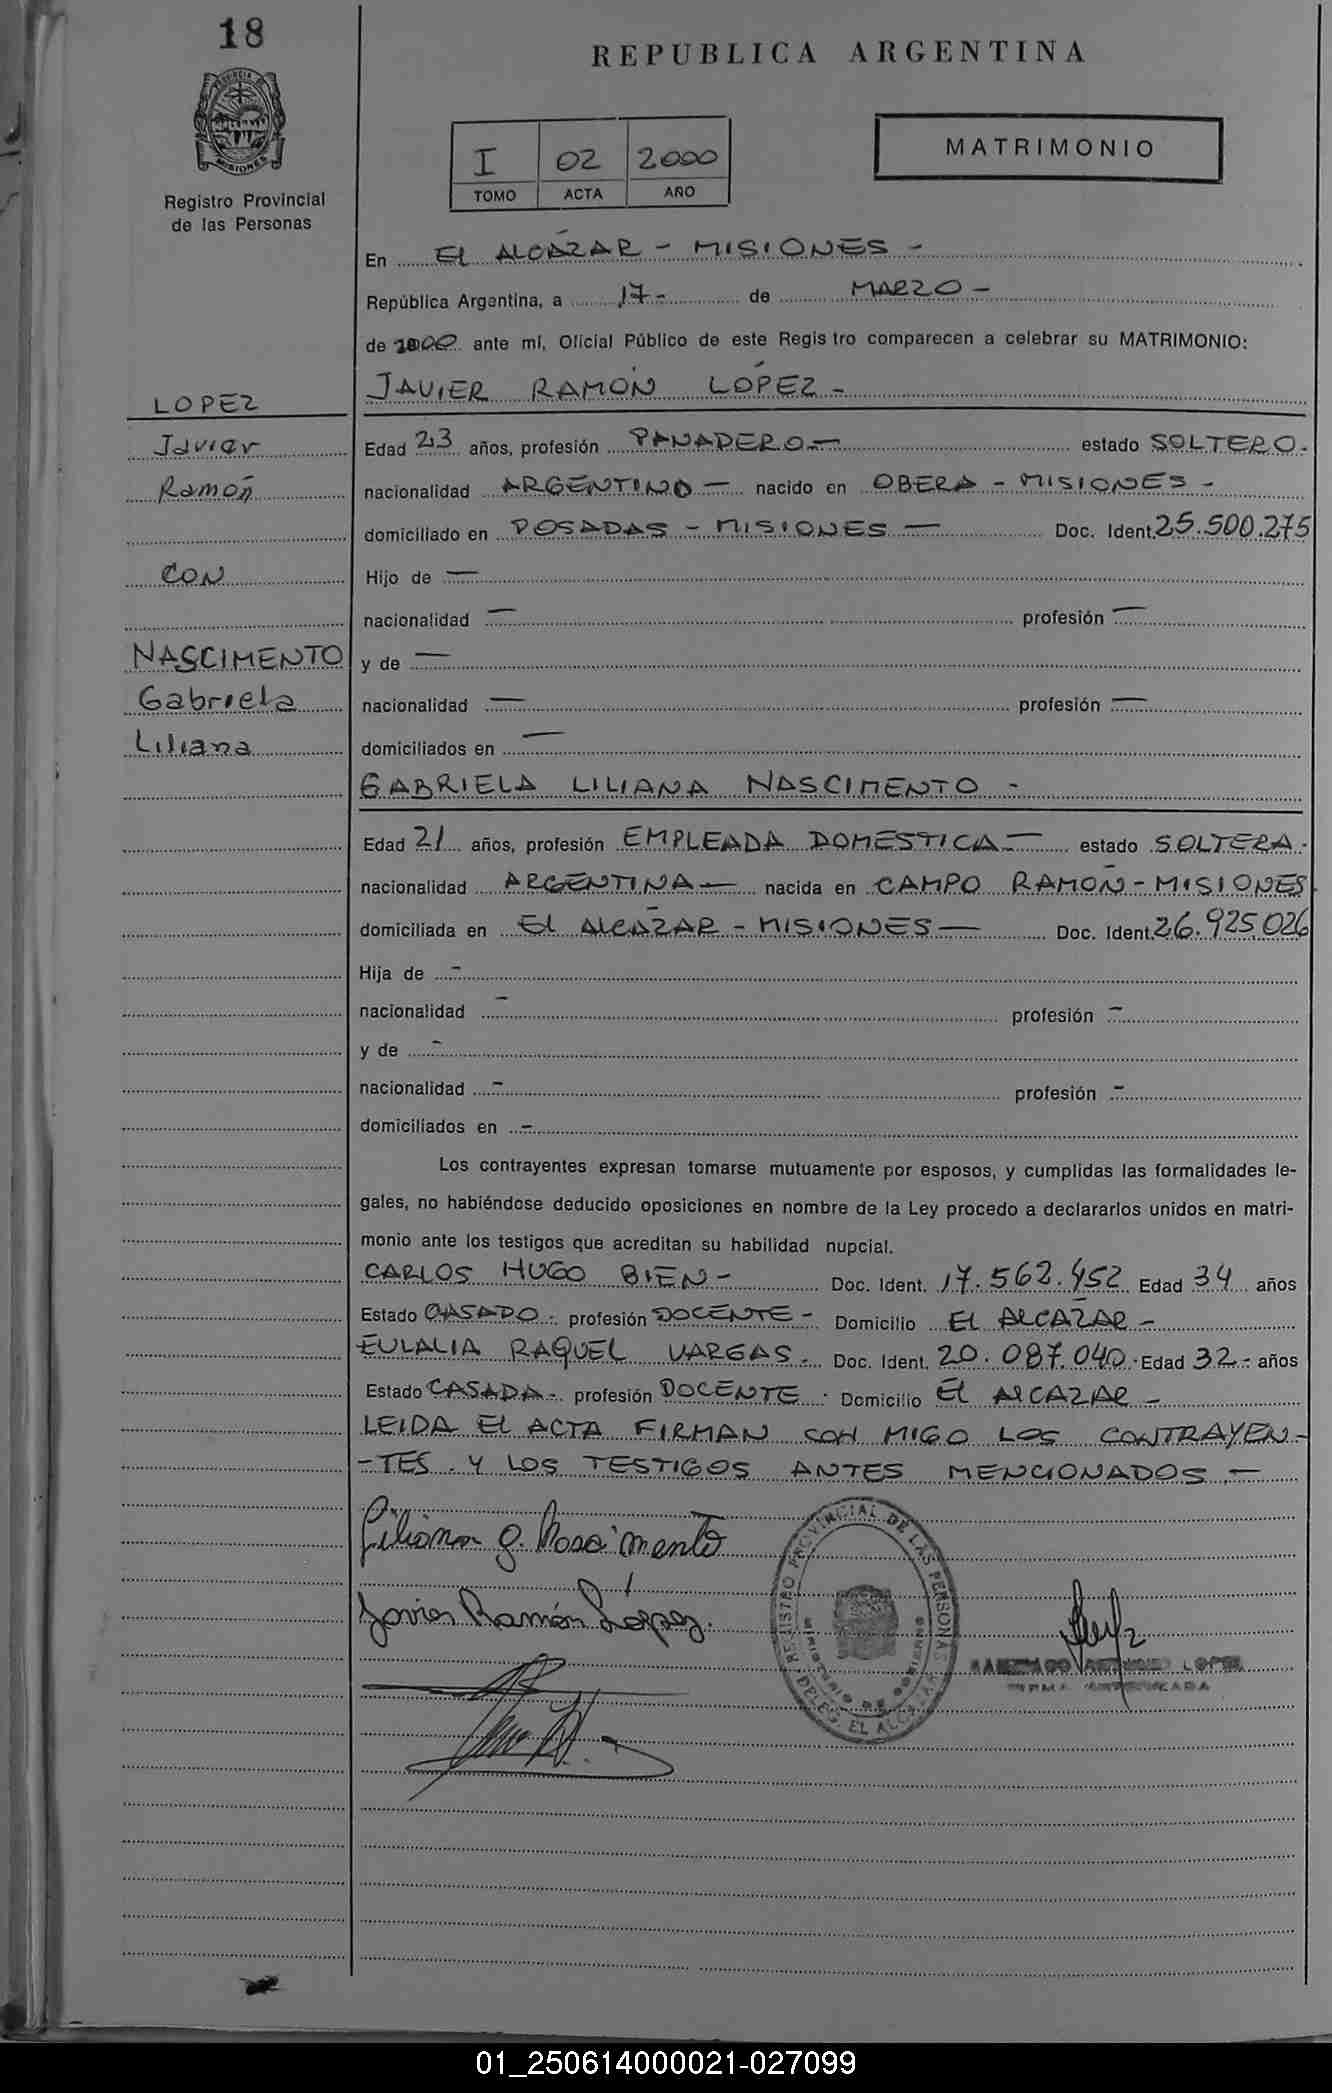 18
REPUBLICA ARGENTINA
PROVINCIA DE
MISIONES
Registro Provincial
de las Personas
I 02 2000
TOMO ACTA AÑO
MATRIMONIO
En EL ALCAZAR - MISIONES -
República Argentina, a 17- de MARZO -
de 2000 ante mí, Oficial Público de este Regis tro comparecen a celebrar su MATRIMONIO:
LOPEZ
JAVIER RAMÓN LÓPEZ -
Javier
Edad 23 años, profesión PANADERO - estado SOLTERO.
Ramón
nacionalidad ARGENTINO - nacido en OBERA - MISIONES -
domiciliado en POSADAS - MISIONES - Doc. Ident. 25.500.275
CON
Hijo de -
nacionalidad - profesión -
NASCIMENTO
y de -
Gabriela
nacionalidad - profesión -
Liliana
domiciliados en -
GABRIELA LILIANA NASCIMENTO -
Edad 21 años, profesión EMPLEADA DOMESTICA - estado SOLTERA.
nacionalidad ARGENTINA - nacida en CAMPO RAMÓN - MISIONES
domiciliada en EL ALCAZAR - MISIONES - Doc. Ident. 26.925.026
Hija de -
nacionalidad - profesión -
y de -
nacionalidad - profesión -
domiciliados en -
Los contrayentes expresan tomarse mutuamente por esposos, y cumplidas las formalidades le-
gales, no habiéndose deducido oposiciones en nombre de la Ley procedo a declararlos unidos en matri-
monio ante los testigos que acreditan su habilidad nupcial.
CARLOS HUGO BIEN - Doc. Ident. 17.562.452 Edad 34 años
Estado CASADO - profesión DOCENTE - Domicilio EL ALCAZAR -
EULALIA RAQUEL VARGAS - Doc. Ident. 20.087.040 - Edad 32 - años
Estado CASADA - profesión DOCENTE - Domicilio EL ALCAZAR -
LEIDA EL ACTA FIRMAN CON MIGO LOS CONTRAYEN-
-TES Y LOS TESTIGOS ANTES MENCIONADOS -
Liliana G. Nascimento
Javier Ramón López.
REGISTRO PROVINCIAL DE LAS PERSONAS
MINISTERIO DE GOBIERNO
DELEG. EL ALCAZAR
LOPEZ
FIRMA AUTORIZADA
01_250614000021-027099